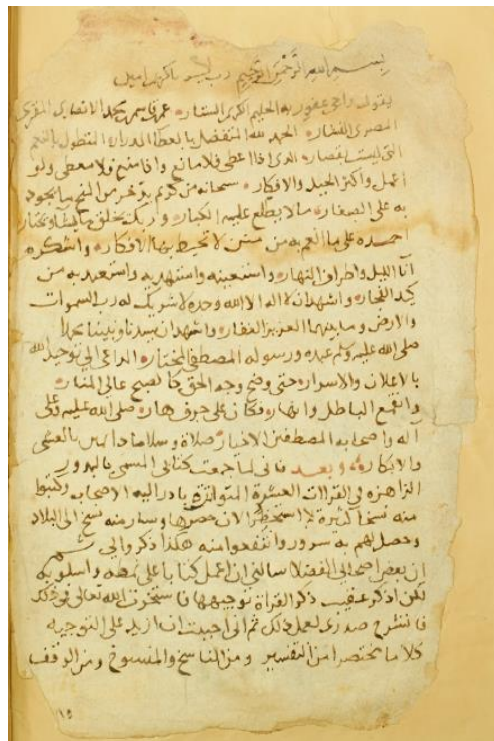 بسم الله الرحمن الرحيم رب يسر يا كريم امين
يقول راجي عفو ربه الحليم الكريم الستاره عمر بن قاسم بن محمد الانصاري المقرى
المصرى النشاره الحمد لله المتفضل بالعطا المدراره المتطول بالنعم
التى ليست بقصاره الذى اذا اعطى فلا مانع واذا منع فلا معطى ولو
اعمل واكثر الحيل والافكاره سبحانه من كريم يؤخر من المنح ما يجود
به على الصغاره ما لا يطلع عليه الكباره وربك يخلق ما يشا ويختار
احمده على ما انعم به من منن لا تحيط بها الافكاره واشكره
آنا الليل واطراف النهاره واستعينه واستهديه واستعيذ به من
كيد الفجاره واشهد ان لا اله الا الله وحده لا شريك له رب السموات
والارض وما بينهما العزيز الغفاره واشهد ان سيدنا ونبينا محمدا
صلى الله عليه وسلم عبده ورسوله المصطفى المختاره الداعى الى توحيد الله
بالاعلان والاسراره حتى وضح وجه الحق كالصبح عالى المناره
وانقمع الباطل وانهاره فكان على جرف هاره صلى الله عليه وعلى
آله واصحابه المصطفين الاخياره صلاة وسلاما دايمين بالعشى
والابكاره وبعد فانى لما جمعت كتابى المسمى بالبدور
الزاهره فى القراات العشرة المتواترة بادر اليه الاصحاب وكتبوا
منه نسخا كثيرة لا استحضر الان حصرها وسار منه نسخ الى البلاد
وحصل لهم به سرور وانتفعوا منه هكذا ذكروا لى ثم
ان بعض اصحابى الفضلا سالنى ان اعمل كتابا على نمطه واسلوبه
لكن اذكر عقيب ذكر القراة توجيهها فاستخرت الله تعالى فى ذلك
فانشرح صدرى لعمل ذلك ثم انى احببت ان ازيد على التوجيه
كلاما مختصرا من التفسير ومن الناسخ والمنسوخ ومن الوقف
١٥